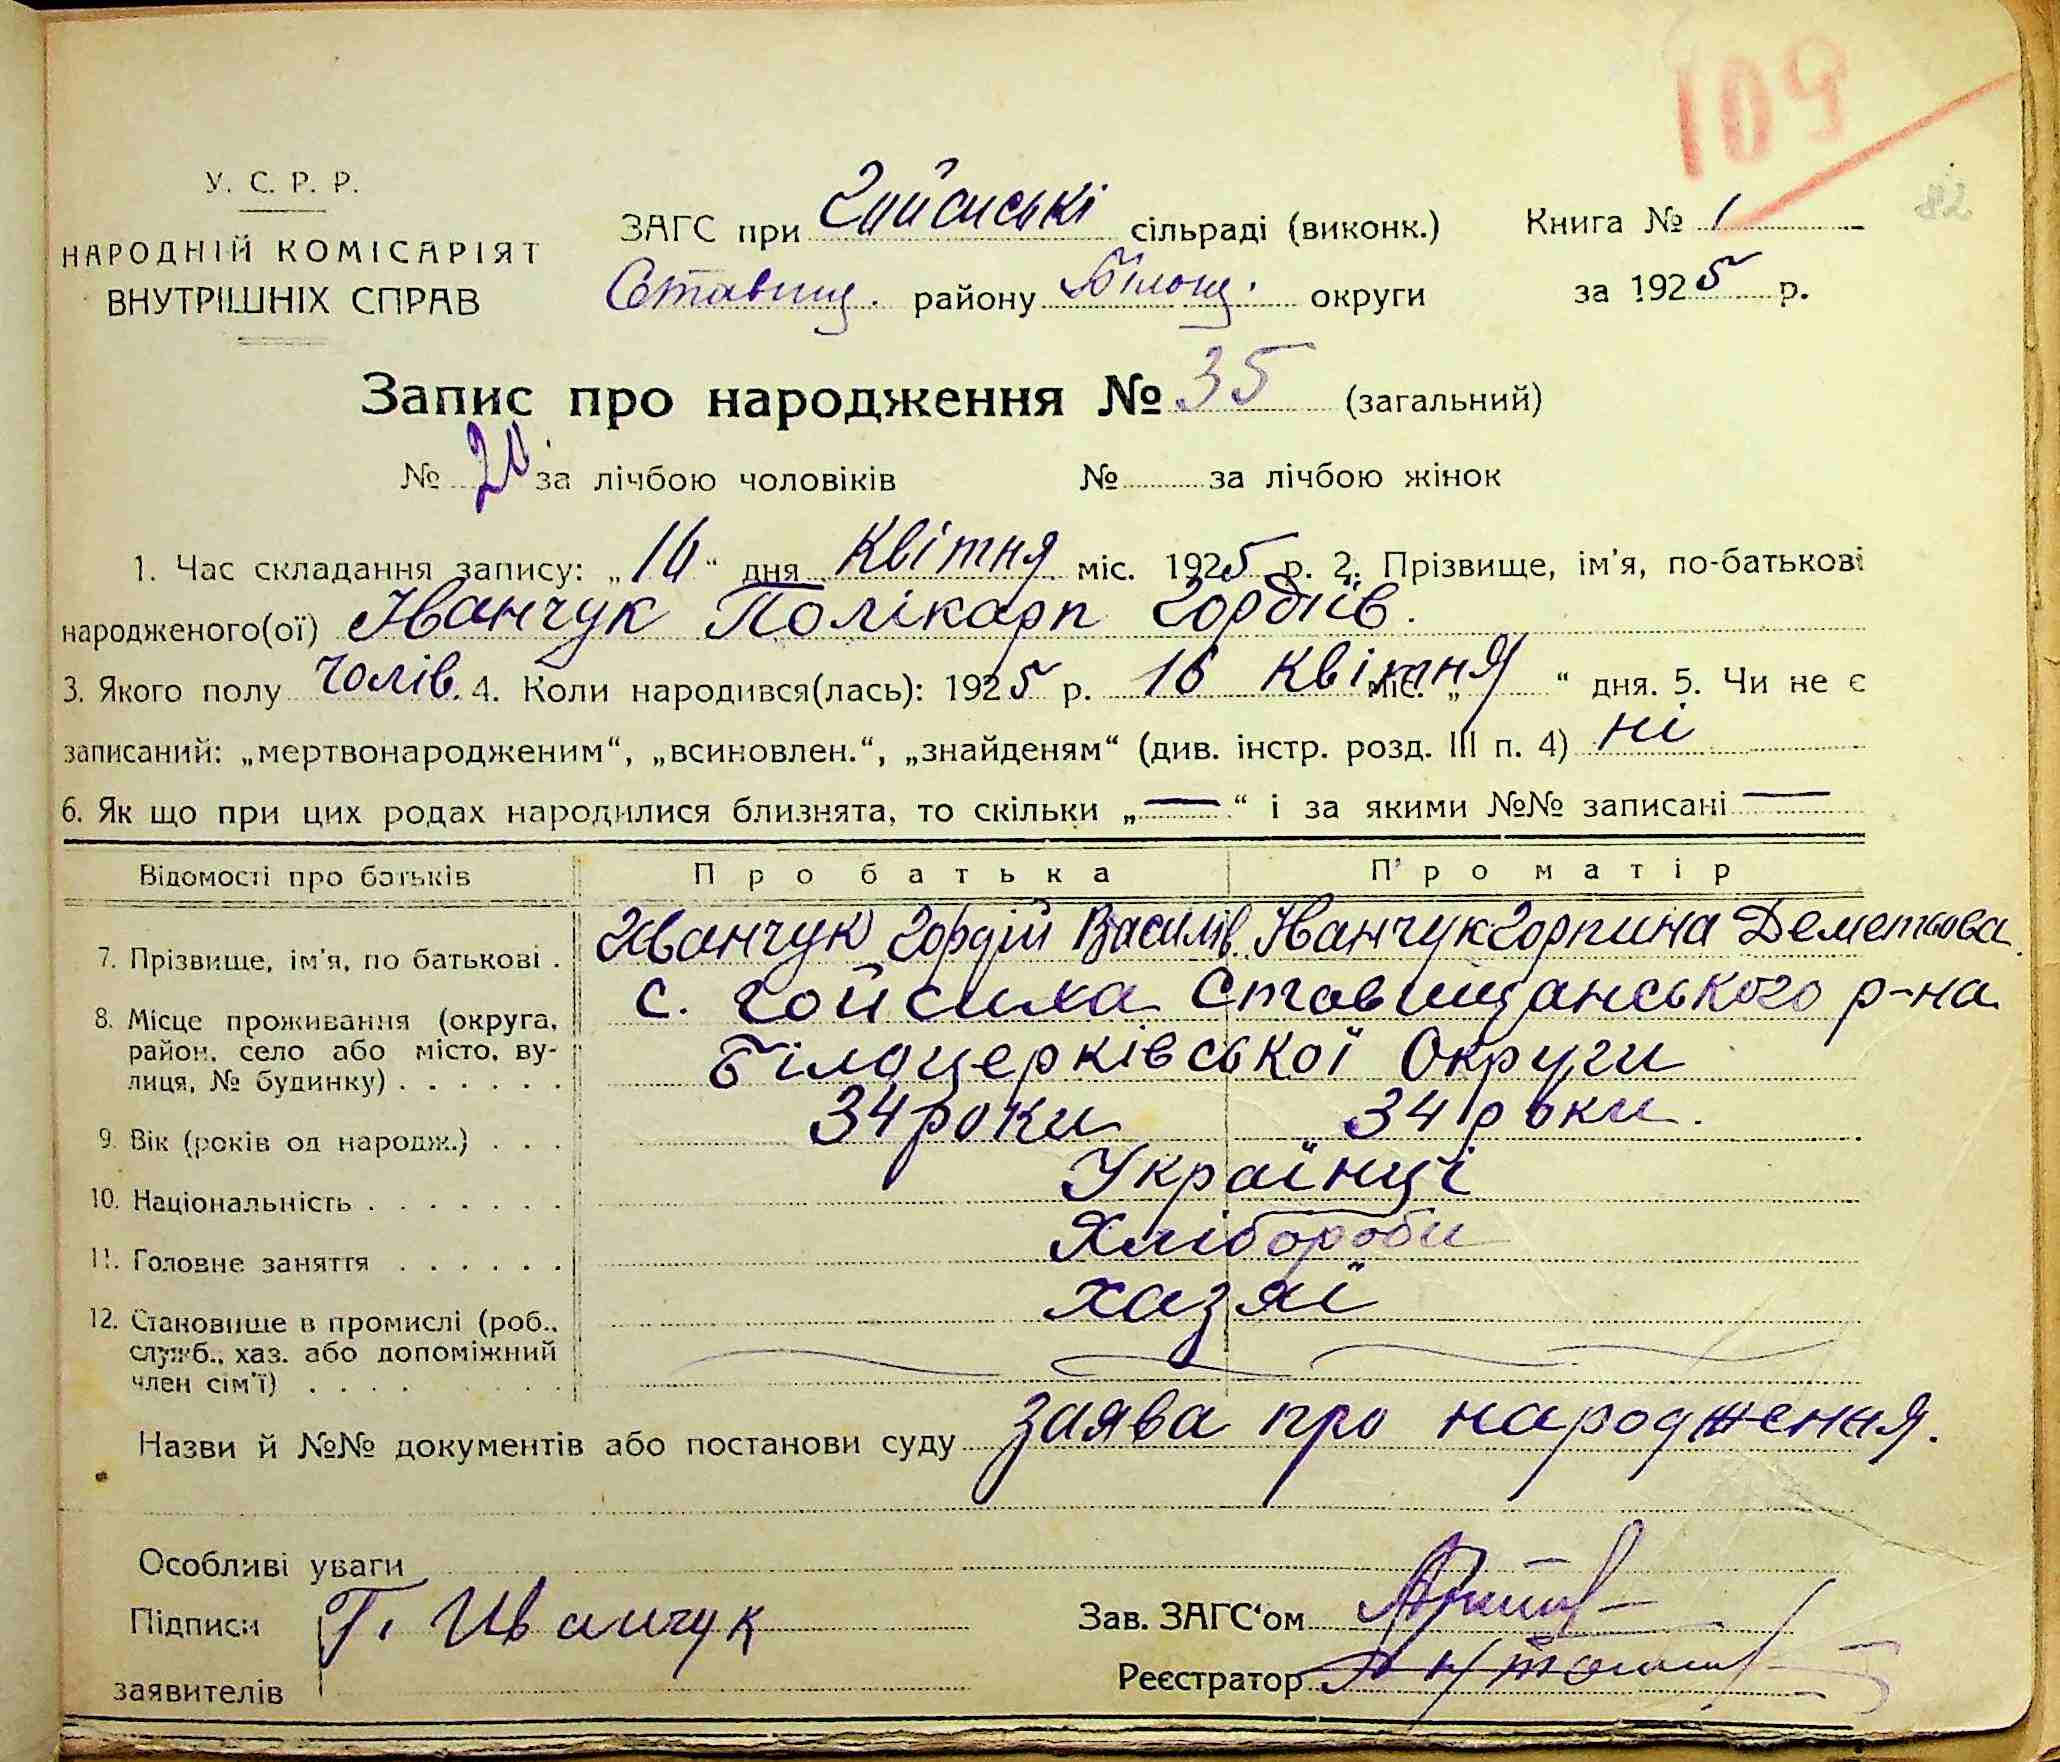 109
82
У. С. Р. Р.
НАРОДНІЙ КОМІСАРІЯТ
ВНУТРІШНІХ СПРАВ
ЗАГС при Гойсиські сільраді (виконк.) Книга № 1
Ставищ. району Білоц. округи за 1925 р.
Запис про народження № 35 (загальний)
№ 20 за лічбою чоловіків № за лічбою жінок
1. Час складання запису: „16“ дня Квітня міс. 1925 р. 2. Прізвище, ім'я, по-батькові
народженого(ої) Іванчук Полікарп Гордіїв.
3. Якого полу чолів. 4. Коли народився(лась): 1925 р. 16 Квітня міс. „ “ дня. 5. Чи не є
записаний: „мертвонародженим“, „всиновлен.“, „знайденям“ (див. інстр. розд. III п. 4) ні
6. Як що при цих родах народилися близнята, то скільки „—“ і за якими №№ записані —
Відомості про батьків Про батька Про матір
7. Прізвище, ім'я, по батькові . Іванчук Гордій Василів. Іванчук Горпина Деметьова
8. Місце проживання (округа, с. Гойсиха Ставищанського р-на
район, село або місто, ву- Білоцерківської Округи
лиця, № будинку) . . . . . .
9. Вік (років од народж.) . . . 34 роки 34 роки.
10. Національність . . . . . . . Українці
11. Головне заняття . . . . . . Хлібороби
12. Становище в промислі (роб., хазяї
служб., хаз. або допоміжний
член сім'ї) . . . .
Назви й №№ документів або постанови суду заява про народження.
Особливі уваги
Підписи Г. Иванчук Зав. ЗАГС'ом
заявителів Реєстратор